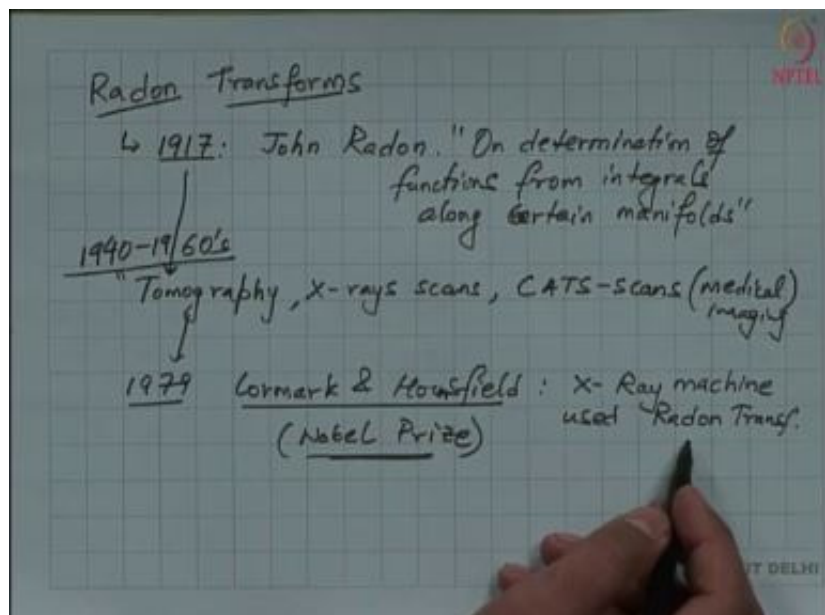 Radon Transforms
NPTEL
↳ 1917: John Radon. "On determination of
functions from integrals
along certain manifolds"
1940-1960's
"Tomography, X-rays scans, CATS-scans (medical
imaging)
1979 Cormark & Hounsfield: X-Ray machine
(Nobel Prize) used Radon Transf.
IT DELHI